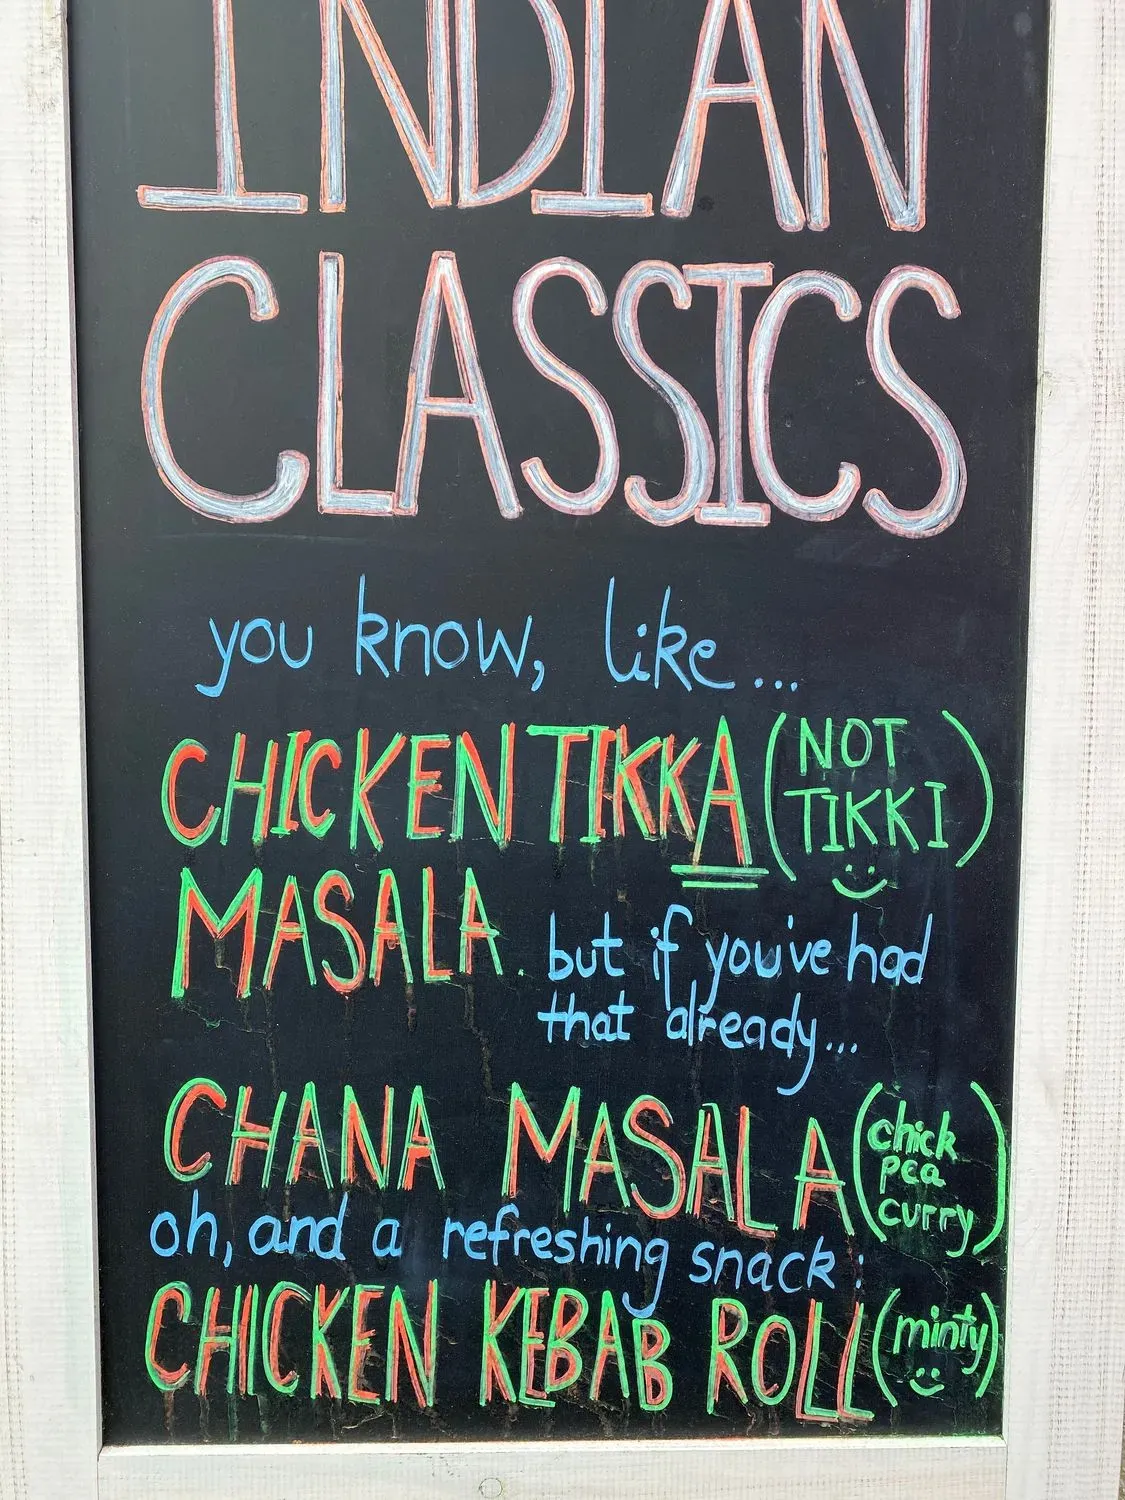 INDIAN
CLASSICS
you know, like...
CHICKEN TIKKA (NOT TIKKI)
MASALA. but if you've had
that already...
CHANA MASALA (chick pea curry)
oh, and a refreshing snack:
CHICKEN KEBAB ROLL (minty)